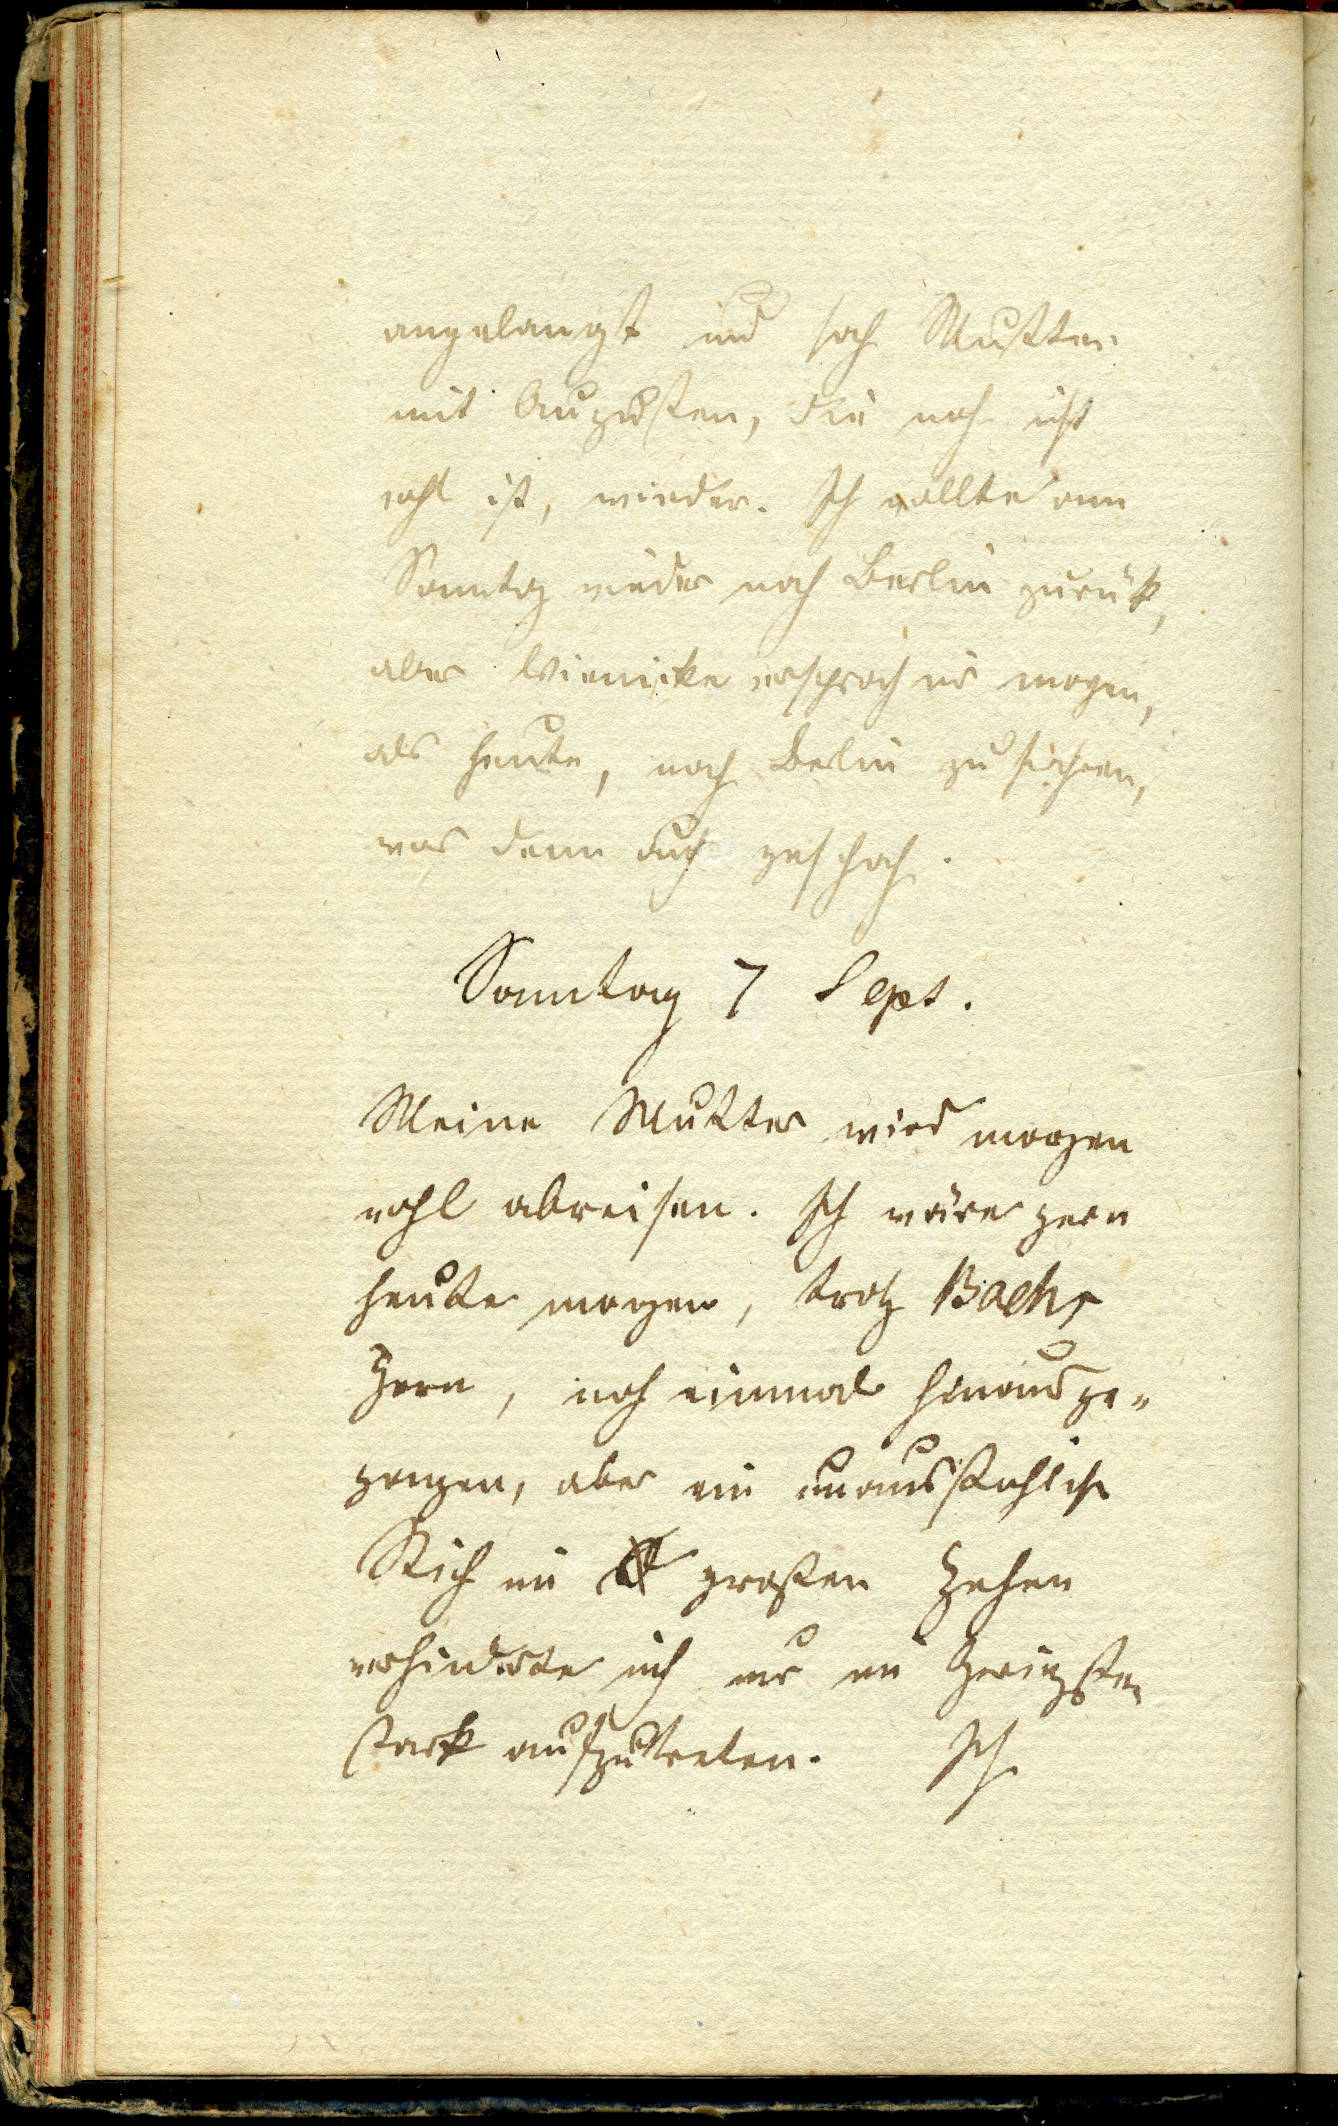 angelangt und sah Mutter
mit Augusten, die noch nicht
wohl ist, wieder. Ich wollte am
Sonntag wieder nach Berlin zurük,
aber Wienicke versprach uns morgen,
als heute, nach Berlin zu fahren,
was denn auch geschah.
Sonntag 7 Sept.
Meine Mutter wird morgen
wohl abreisen. Ich wäre gern
heute morgen, trotz Bachs
Zorn, noch einmal hinausge-
gangen, aber ein unausstehlicher
Stich im großen Zehen
verhinderte mich nur im Geringsten
stark aufzutreten. Ich